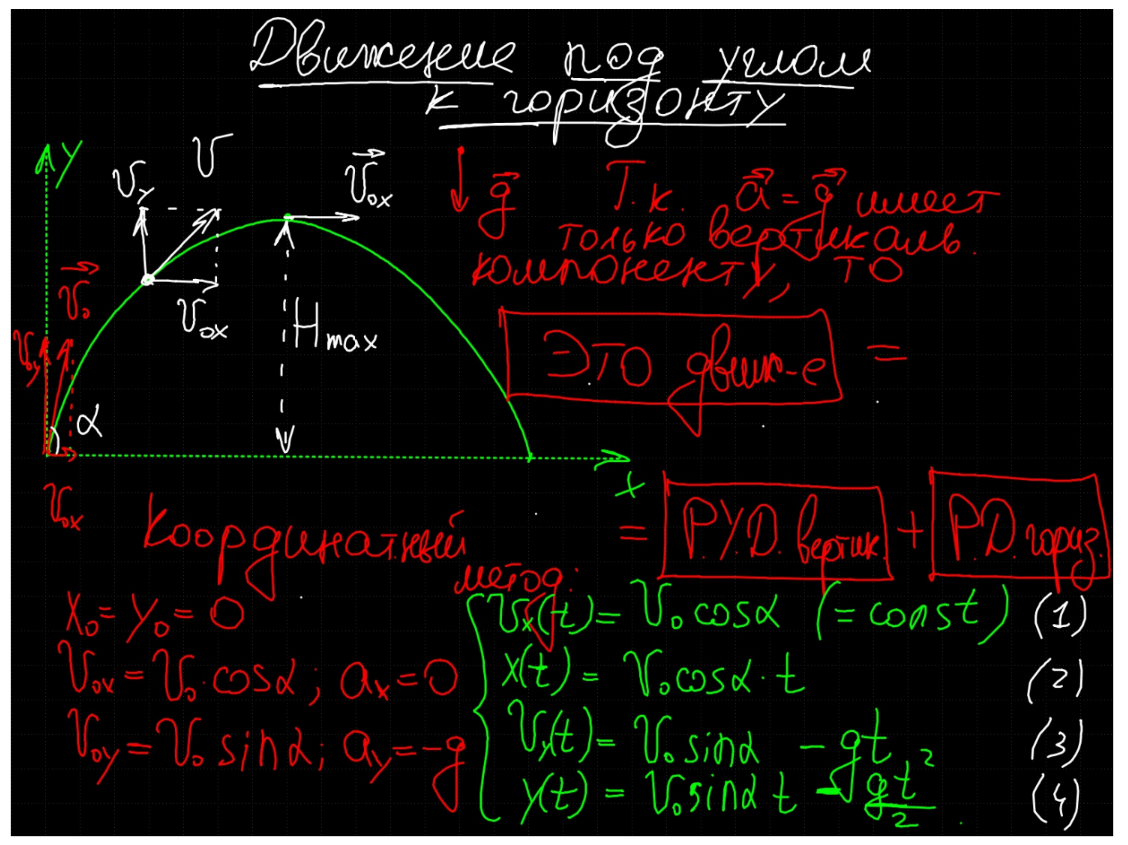 Движение под углом
к горизонту
y
V⃗ₒₓ
Vᵧ
V
g⃗
Т.к. a⃗ = g⃗ имеет
только вертикаль.
компоненту, то
V⃗₀
Vₒₓ
Vₒᵧ
Hmax
ЭТО движ-е =
α
x
Vₒₓ
= Р.У.Д. вертик. + Р.Д. гориз.
Координатный
метод:
x₀ = y₀ = 0
V₀ₓ = V₀·cosα; aₓ = 0
V₀ᵧ = V₀ sinα; aᵧ = -g
Vₓ(t) = V₀ cosα (= const) (1)
x(t) = V₀cosα·t (2)
Vᵧ(t) = V₀sinα - gt (3)
y(t) = V₀sinα t - gt²/2. (4)